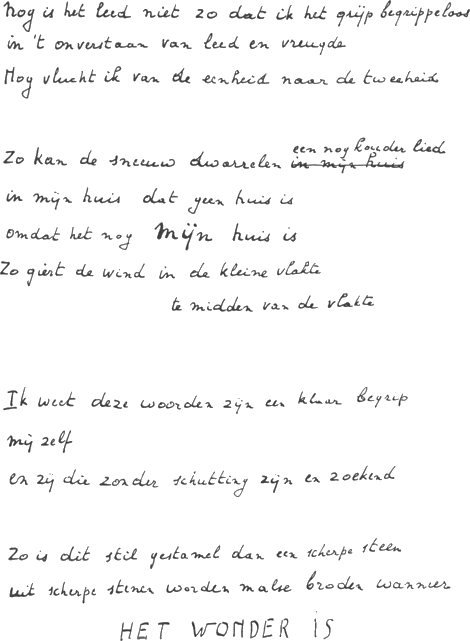 Nog is het leed niet zo dat ik het grijp begrippeloos
in 't onverstaan van leed en vreugde
Nog vlucht ik van de eenheid naar de tweeheid
Zo kan de sneeuw dwarrelen een nog kouder lied in mijn huis
in mijn huis dat geen huis is
omdat het nog mijn huis is
Zo giert de wind in de kleine vlakte
te midden van de vlakte
Ik weet deze woorden zijn een klaar begrip
mij zelf
en zij die zonder schutting zijn en zoekend
Zo is dit stil gestamel dan een scherpe steen
uit scherpe stenen worden malse broden wanneer
HET WONDER IS